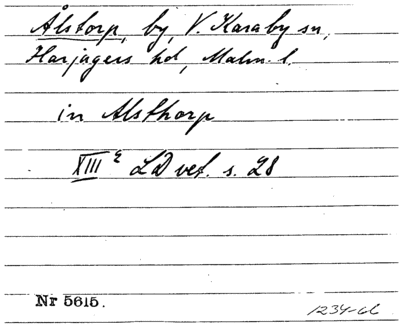 Ålstorp, by, V. Karaby sn,
Harjagers hd, Malm. l.
in Alsthorp
XIII² LD vet. s. 28
Nr 5615.
1234-66